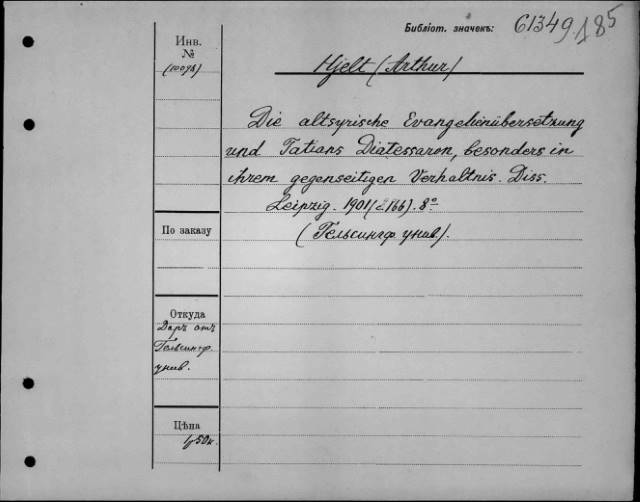 Библіот. значекъ: 61349.185
Инв.
№
Hjelt (Arthur)
Die altsyrische Evangelienübersetzung
und Tatians Diatessaron, besonders in
ihrem gegenseitigen Verhältnis. Diss.
Leipzig. 1901 (с. 166). 8°
(Гельсингф. унив.).
По заказу
Откуда
Даръ отъ
Гельсингф.
унив.
Цѣна
1 р 50 к.